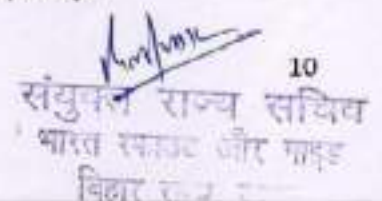 10
संयुक्त राज्य सचिव
भारत स्काउट और गाइड
बिहार राज्य